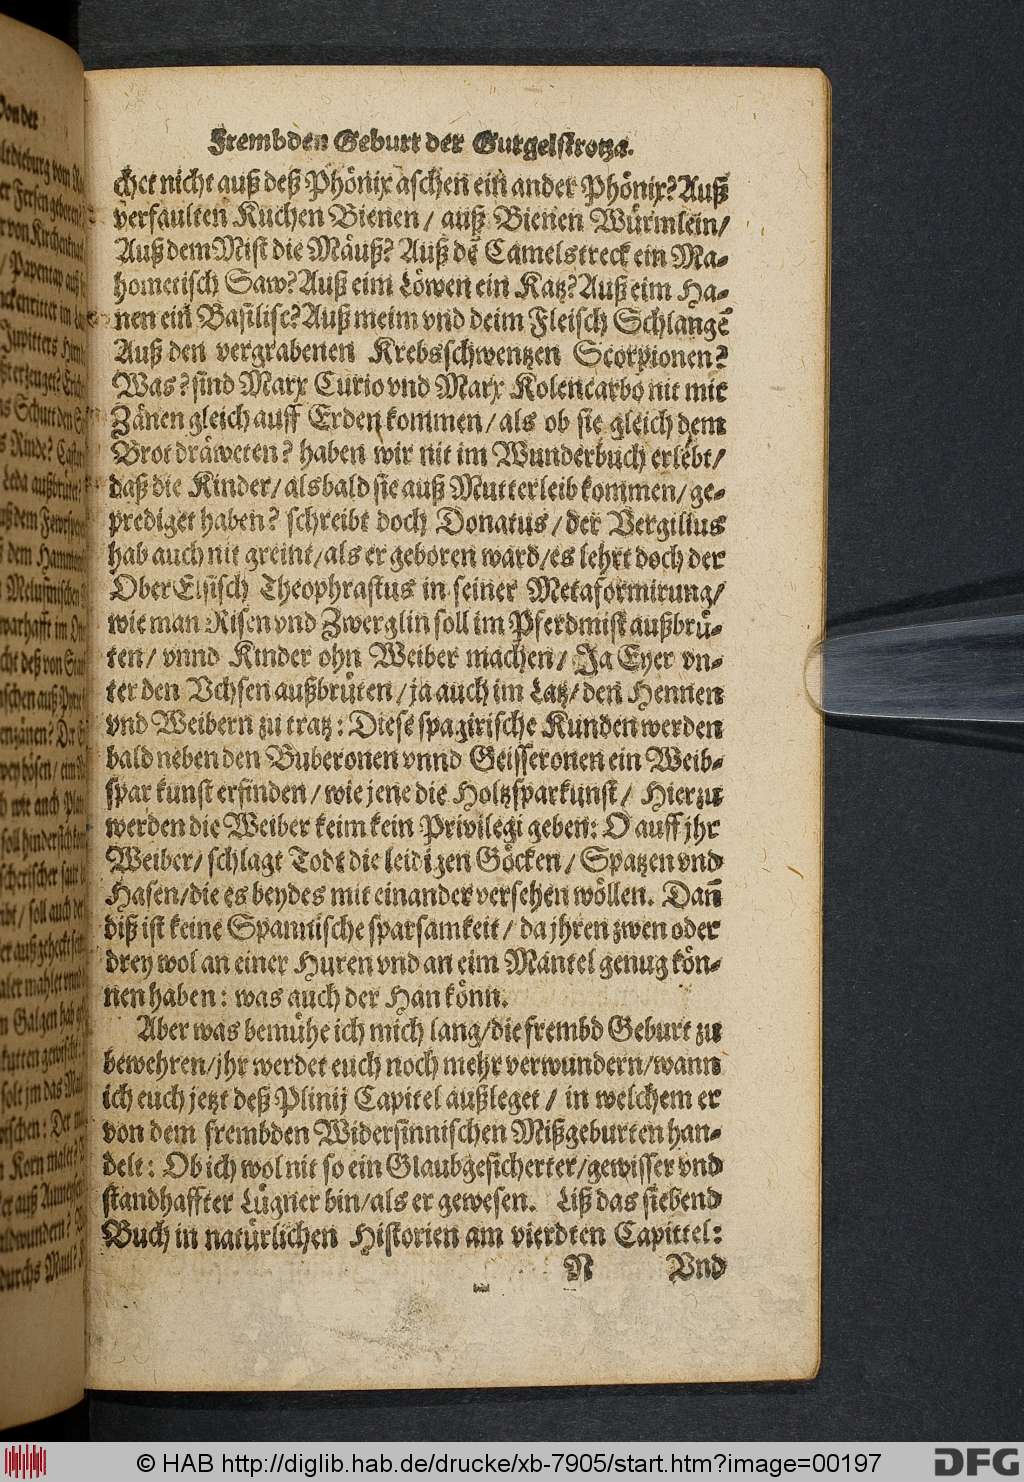 Frembden Geburt der Gurgelstrotza.
chet nicht auß deß Phönix aschen ein ander Phönix? Auß
verfaulten Kuchen Bienen / auß Bienen Würmlein/
Auß dem Mist die Mäuß? Auß dẽ Camelstreck ein Ma-
hometisch Saw? Auß eim Löwen ein Katz? Auß eim Ha-
nen ein Basilisc? Auß meim vnd deim Fleisch Schlangẽ
Auß den vergrabenen Krebsschwentzen Scorpionen?
Was? sind Marx Curio vnd Marx Kolencarbo nit mit
Zänen gleich auff Erden kommen / als ob sie gleich dem
Brot dräweten? haben wir nit im Wunderbuch erlebt/
daß die Kinder / alsbald sie auß Mutterleib kommen / ge-
prediget haben? schreibt doch Donatus / der Vergilius
hab auch nit greint / als er geboren ward / es lehrt doch der
OberElsisch Theophrastus in seiner Metaformirung/
wie man Risen vnd Zwerglin soll im Pferdmist außbrü-
ten / vnnd Kinder ohn Weiber machen / Ja Eyer vn-
ter den Vchsen außbrüten / ja auch im Latz / den Hennen
vnd Weibern zu tratz: Diese spagirische Kunden werden
bald neben den Buberonen vnnd Geisseronen ein Weib-
spar kunst erfinden / wie jene die Holtzsparkunst / Hierzu
werden die Weiber keim kein Privilegi geben: O auff jhr
Weiber / schlagt Todt die leidigen Göcken / Spatzen vnd
Hasen / die es beydes mit einander versehen wöllen. Dañ
diß ist keine Spannische sparsamkeit / da jhren zwen oder
drey wol an einer Huren vnd an eim Mantel genug kön-
nen haben: was auch der Han könn.
Aber was bemühe ich mich lang / die frembd Geburt zu
bewehren / jhr werdet euch noch mehr verwundern / wann
ich euch jetzt deß Plinij Capitel außleget / in welchem er
von dem frembden Widersinnischen Mißgeburten han-
delt: Ob ich wol nit so ein Glaubgesicherter / gewisser vnd
standhaffter Lügner bin / als er gewesen. Liß das siebend
Buch in natürlichen Historien am vierdten Capittel:
N Vnd
© HAB http://diglib.hab.de/drucke/xb-7905/start.htm?image=00197
DFG